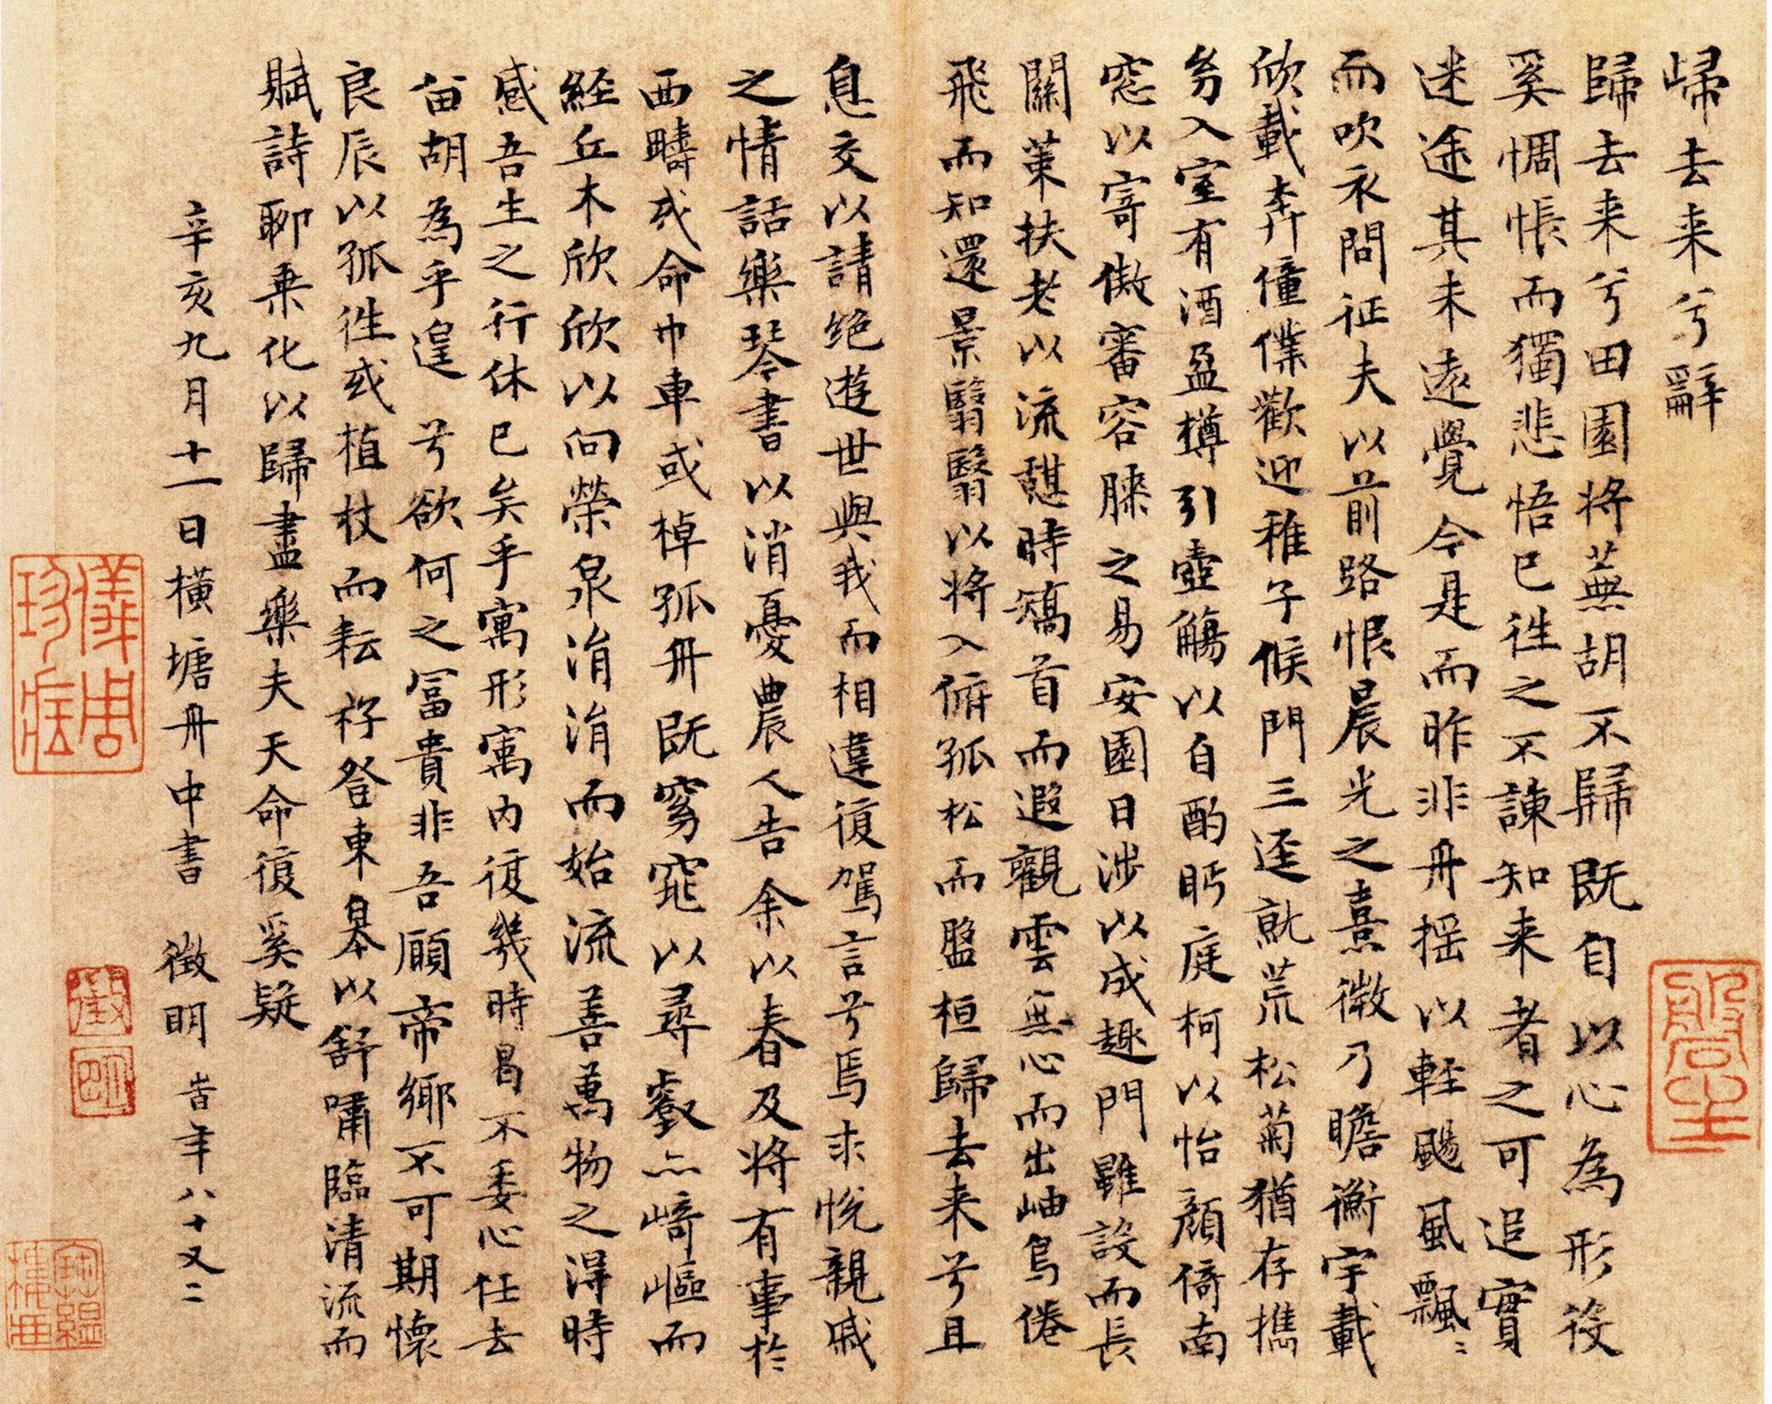 歸去来兮辭
歸去来兮田園将蕪胡不歸既自以心為形役
奚惆悵而獨悲悟已往之不諫知来者之可追實
迷途其未遠覺今是而昨非舟揺以輕颺風飄〻
而吹衣問征夫以前路恨晨光之熹微乃瞻衡宇載
欣載奔僮僕歡迎稚子候門三逕就荒松菊猶存携
㓜入室有酒盈樽引壺觴以自酌眄庭柯以怡顔倚南
窓以寄傲審容膝之易安園日涉以成趣門雖設而長
關策扶老以流憩時矯首而遐觀雲無心而出岫鳥倦
飛而知還景翳翳以将入俯孤松而盤桓歸去来兮且
息交以請絶遊世與我而相違復駕言兮焉求悅親戚
之情話樂琴書以消憂農人告余以春及将有事於
西疇或命巾車或棹孤舟既窈窕以尋壑亦崎嶇而
経丘木欣欣以向榮泉涓涓而始流善萬物之得時
感吾生之行休已矣乎寓形寓内復幾時曷不委心任去
留胡為乎遑兮欲何之冨貴非吾願帝鄉不可期懷
良辰以孤往或植杖而耘耔登東皋以舒嘯臨清流而
賦詩聊乗化以歸盡樂夫天命復奚疑
辛亥九月十一日橫塘舟中書 徵明 旹年八十又二
徵
明
儀周
珍藏